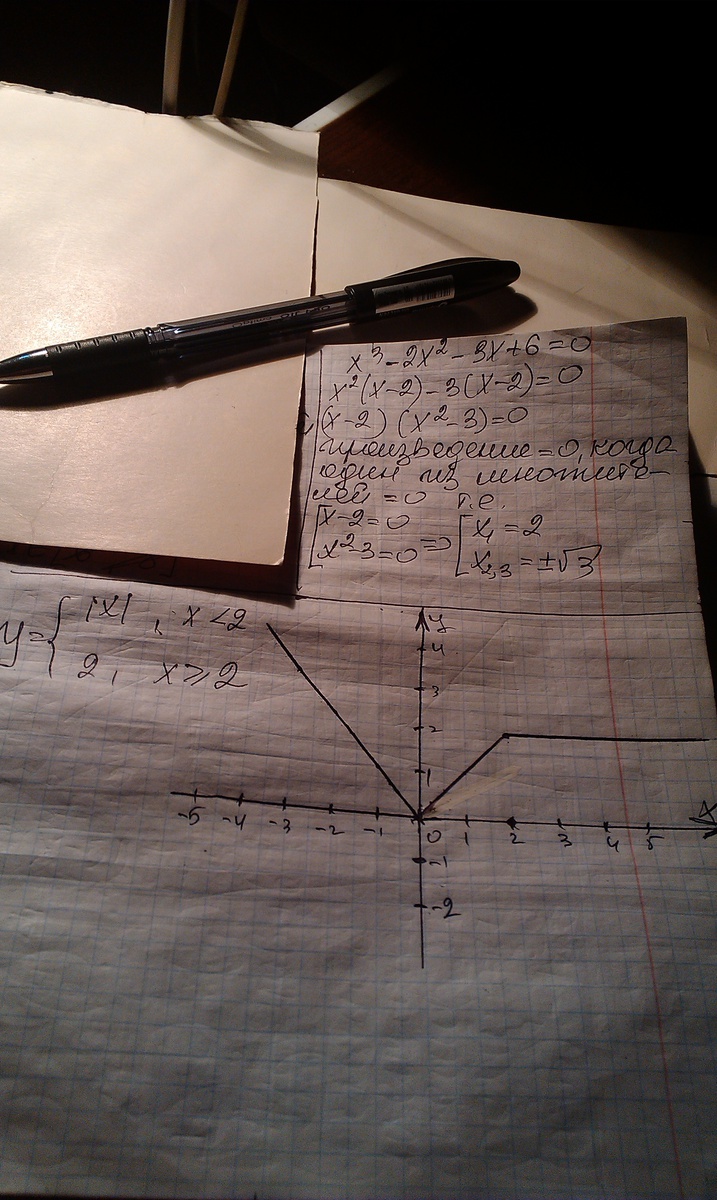 x³-2x²-3x+6=0
x²(x-2)-3(x-2)=0
(x-2)(x²-3)=0
произведение=0, когда
один из множите-
лей =0 т.е.
[x-2=0
x²-3=0 => [x₁=2
x₂,₃=±√3
y={|x|, x<2
2, x≥2
y
4
3
2
1
-5 -4 -3 -2 -1 0 1 2 3 4 5 x
-1
-2